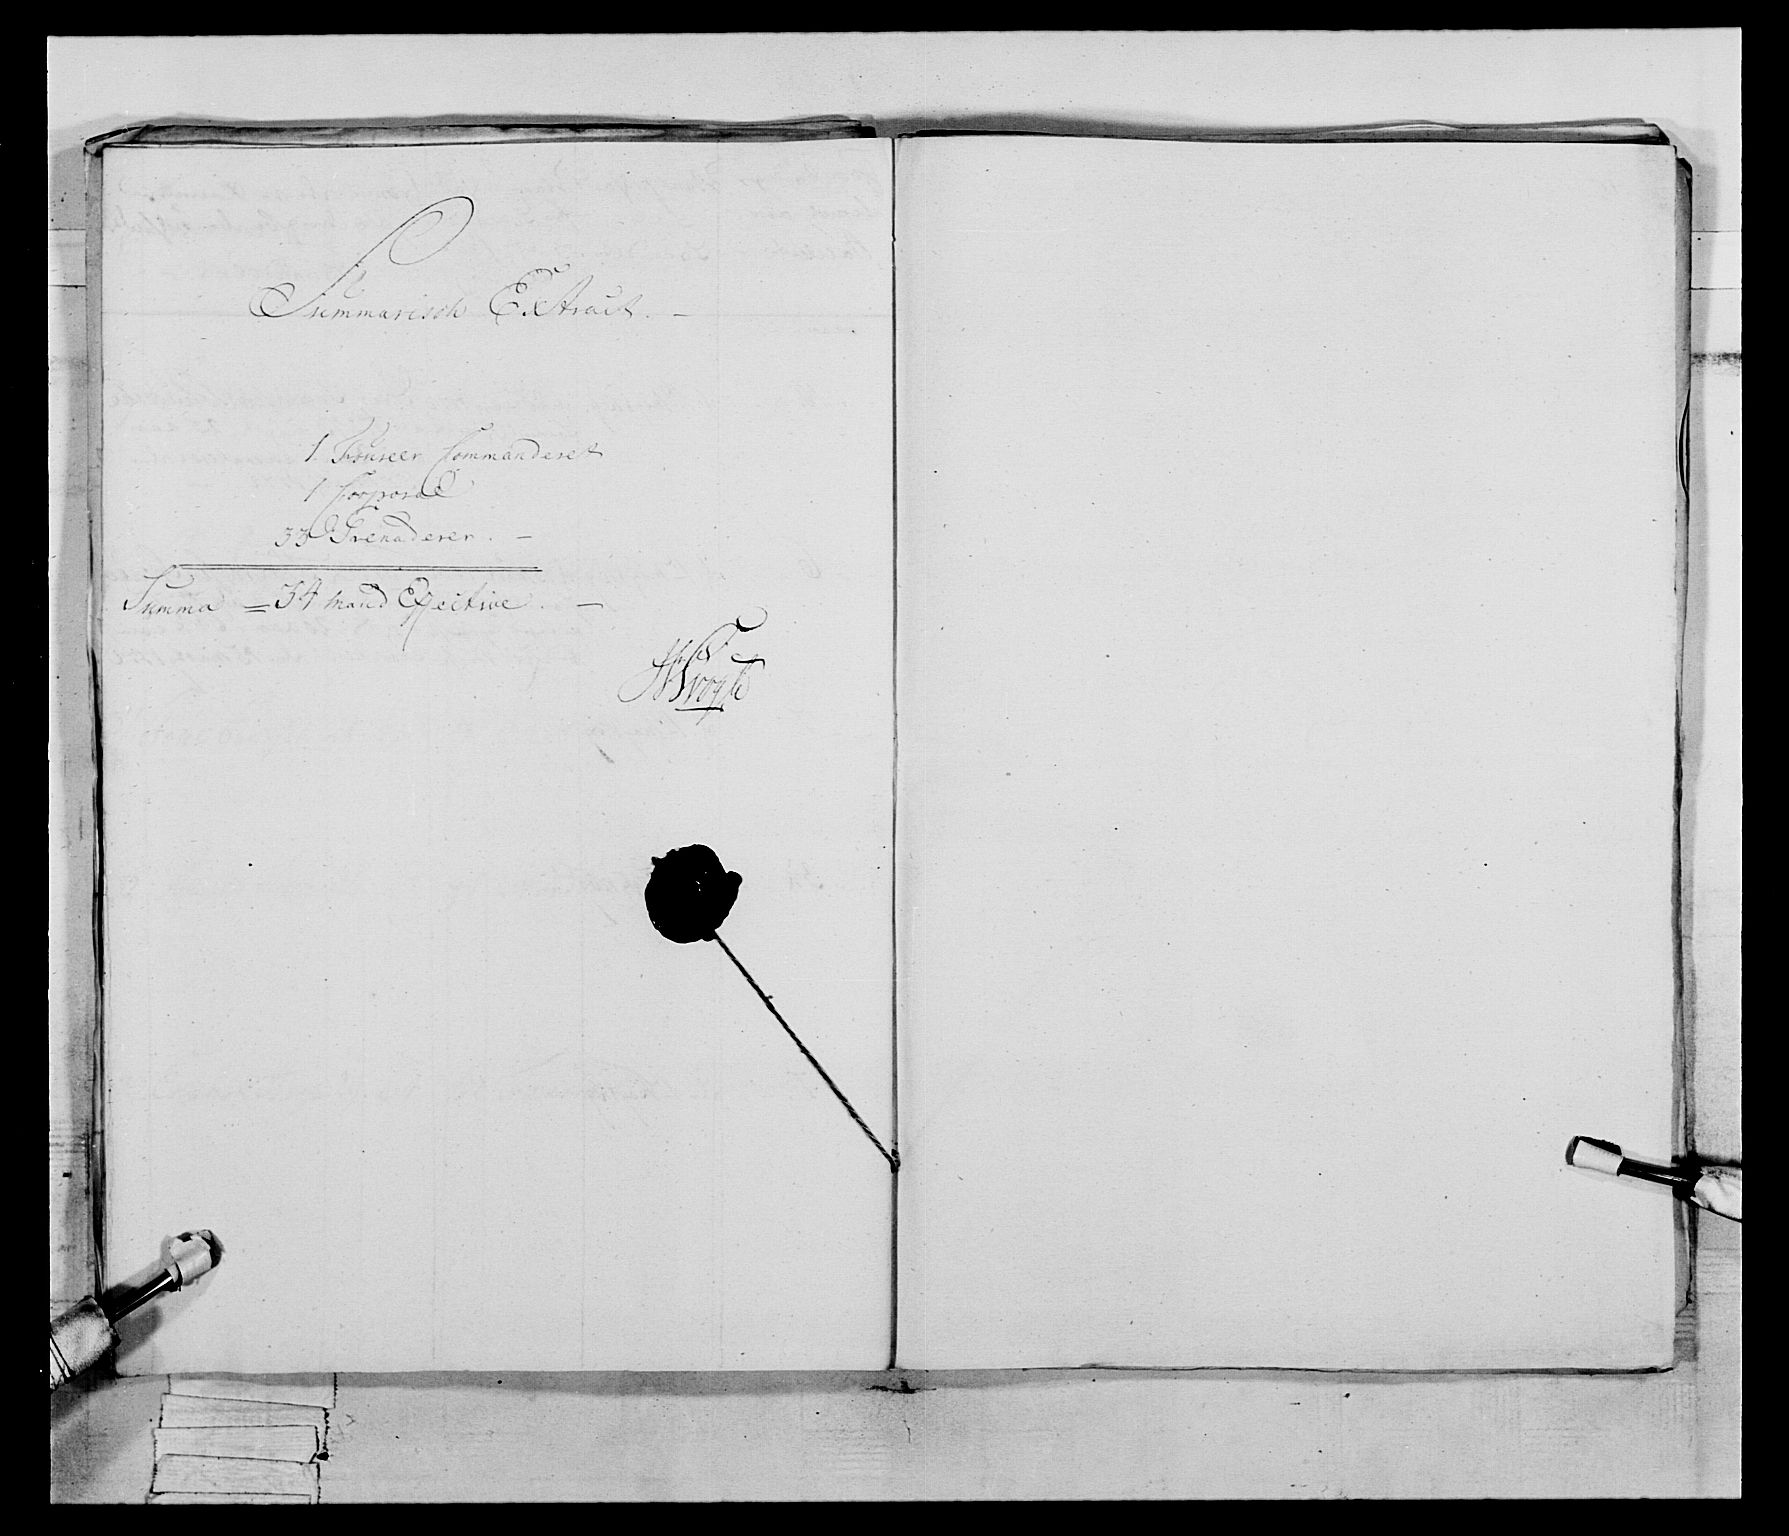 Summarisch Extract. –
1. Foureer Commanderet
1 Corporal
33 Grenaderer. –
Summa = 34 mand Effective. –